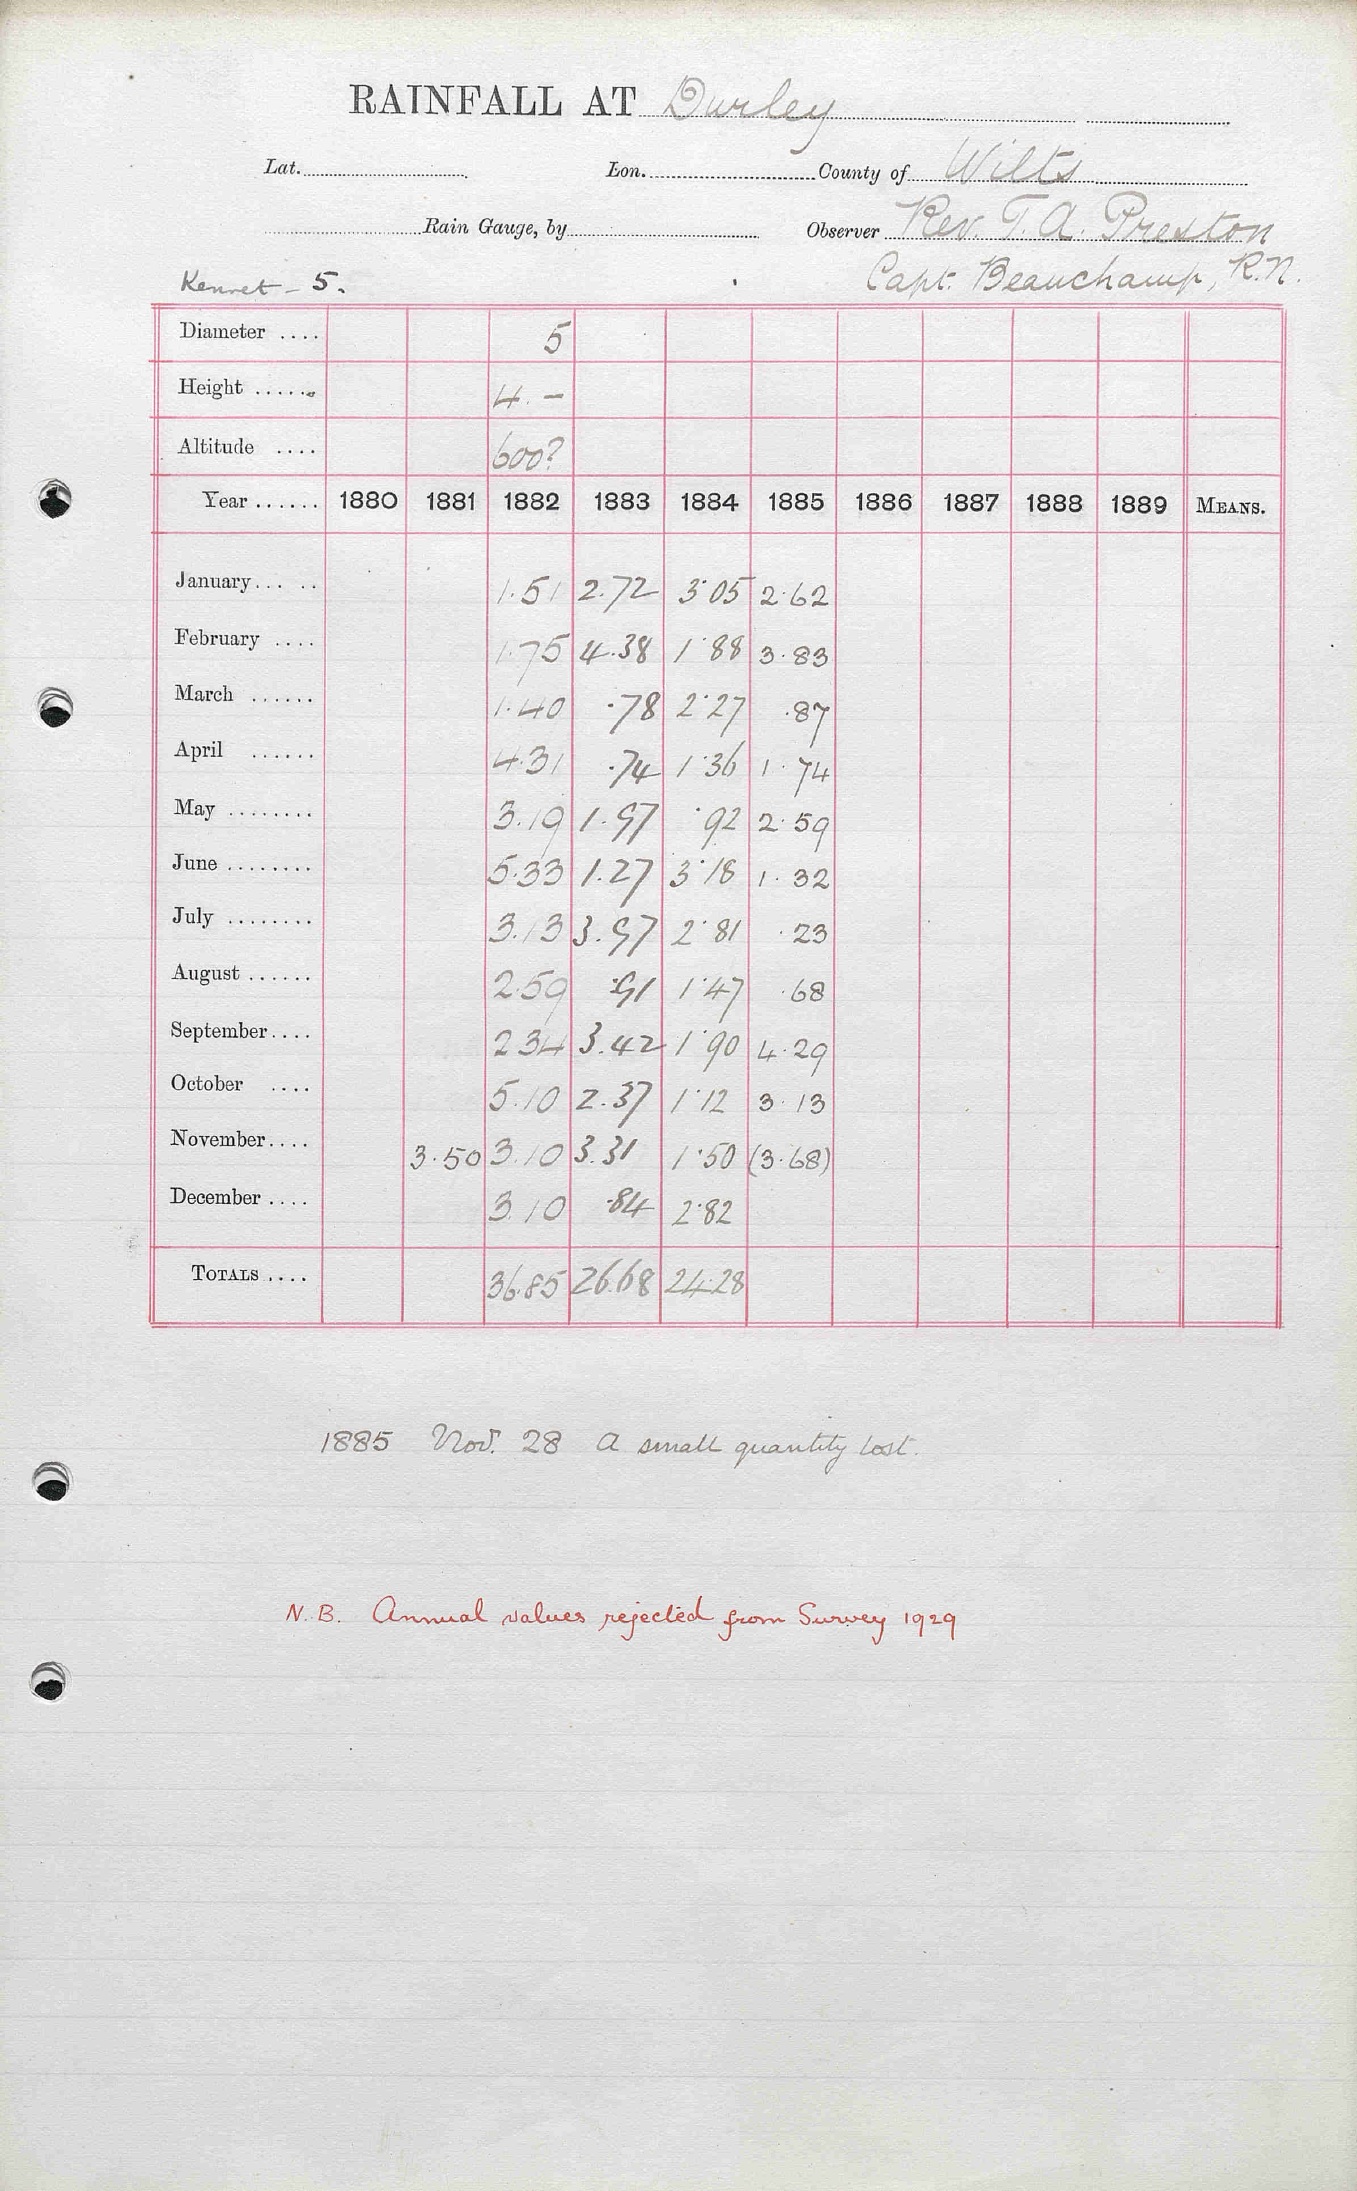 RAINFALL AT Durley
Lat. Lon. County of Wilts
Rain Gauge, by Observer Rev. T. A. Preston
Kennet - 5. Capt. Beauchamp, R.N.
Diameter .... 5
Height ...... 4. -
Altitude .... 600?
Year ...... 1880 1881 1882 1883 1884 1885 1886 1887 1888 1889 MEANS.
January ... .. 1.51 2.72 3.05 2.62
February .... 1.75 4.38 1.88 3.83
March ...... 1.40 .78 2.27 .87
April ...... 4.31 .74 1.36 1.74
May ........ 3.19 1.97 .92 2.59
June ........ 5.33 1.27 3.18 1.32
July ........ 3.13 3.97 2.81 .23
August ...... 2.59 .91 1.47 .68
September .... 2.34 3.42 1.90 4.29
October .... 5.10 2.37 1.12 3.13
November .... 3.50 3.10 3.31 1.50 (3.68)
December .... 3.10 .84 2.82
TOTALS .... 36.85 26.68 24.28
1885 Nov. 28 A small quantity lost.
N.B. Annual values rejected from Survey 1929